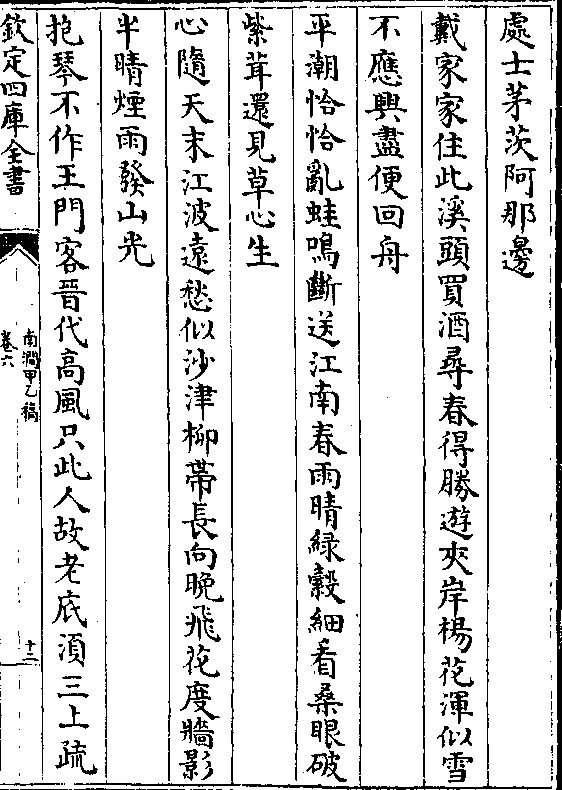 處士茅茨阿那邊
戴家家住此溪頭買酒尋春得勝遊夾岸楊花渾似雪
不應興盡便回舟
平潮恰恰亂蛙鳴斷送江南春雨晴綠縠細看桑眼破
紫茸還見草心生
心隨天末江波遠愁似沙津柳帶長向晚飛花度牆影
半晴煙雨發山光
抱琴不作王門客晉代高風只此人故老底湏三上疏
欽定四庫全書
南澗甲乙稿
卷六
十二